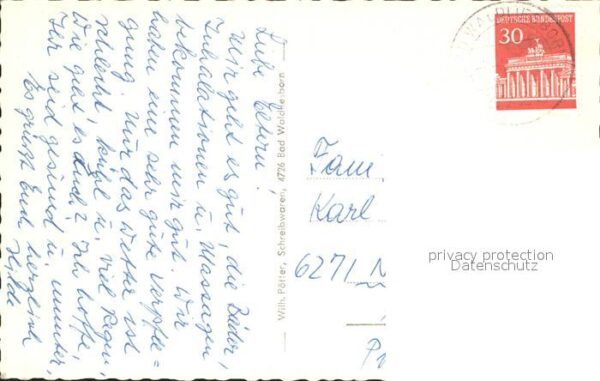 Liebe Eltern!
Mir geht es gut, die Bäder,
Inhalationen u. Massagen
bekommen mir gut. Wir
haben eine sehr gute Verpfle=
gung. Nur das Wetter ist
schlecht, kühl u. viel Regen,
Wie geht es Euch? Ich hoffe,
Ihr seid gesund u. munter,
Es grüßt Euch herzlich
Heide
Wilh. Pötter, Schreibwaren, 4726 Bad Waldliesborn
DEUTSCHE BUNDESPOST
30
Fam
Karl
6271 N
privacy protection
Datenschutz